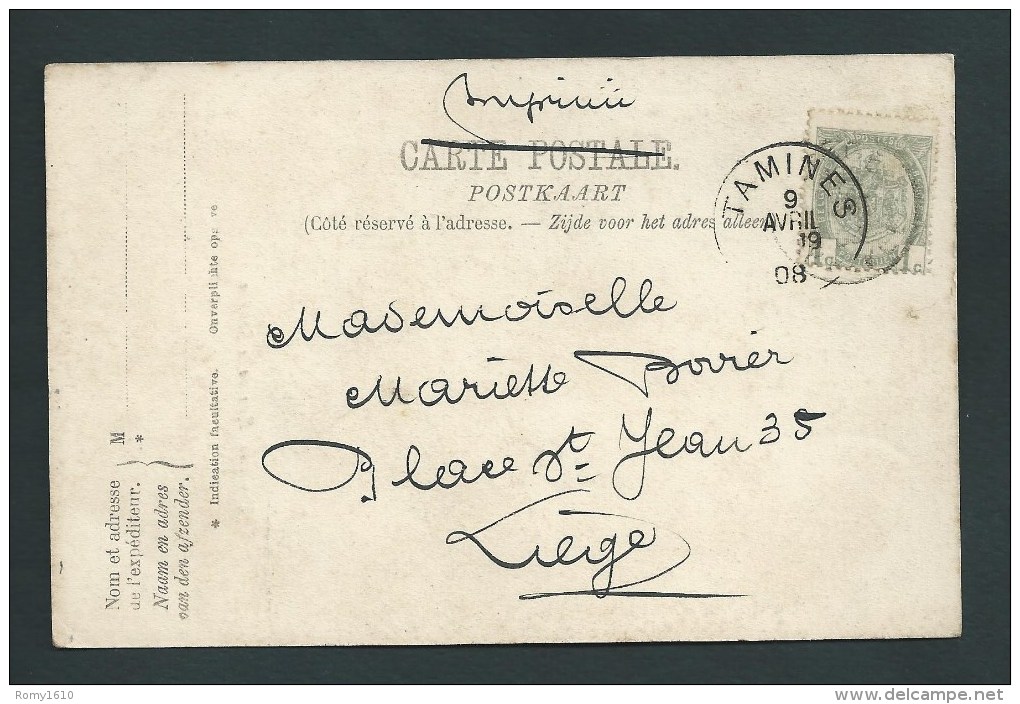 Imprimé
CARTE POSTALE.
POSTKAART
(Côté réservé à l'adresse. — Zijde voor het adres alleen
TAMINES
9
AVRIL
19
08
POSTES
1 c 1 c
Mademoiselle
Mariette
Place St Jean 35
Liège
Nom et adresse
de l'expéditeur.
Naam en adres
van den afzender.
M
*
* Indication facultative. Onverplichte opgave
Romy1610
www.delcampe.net